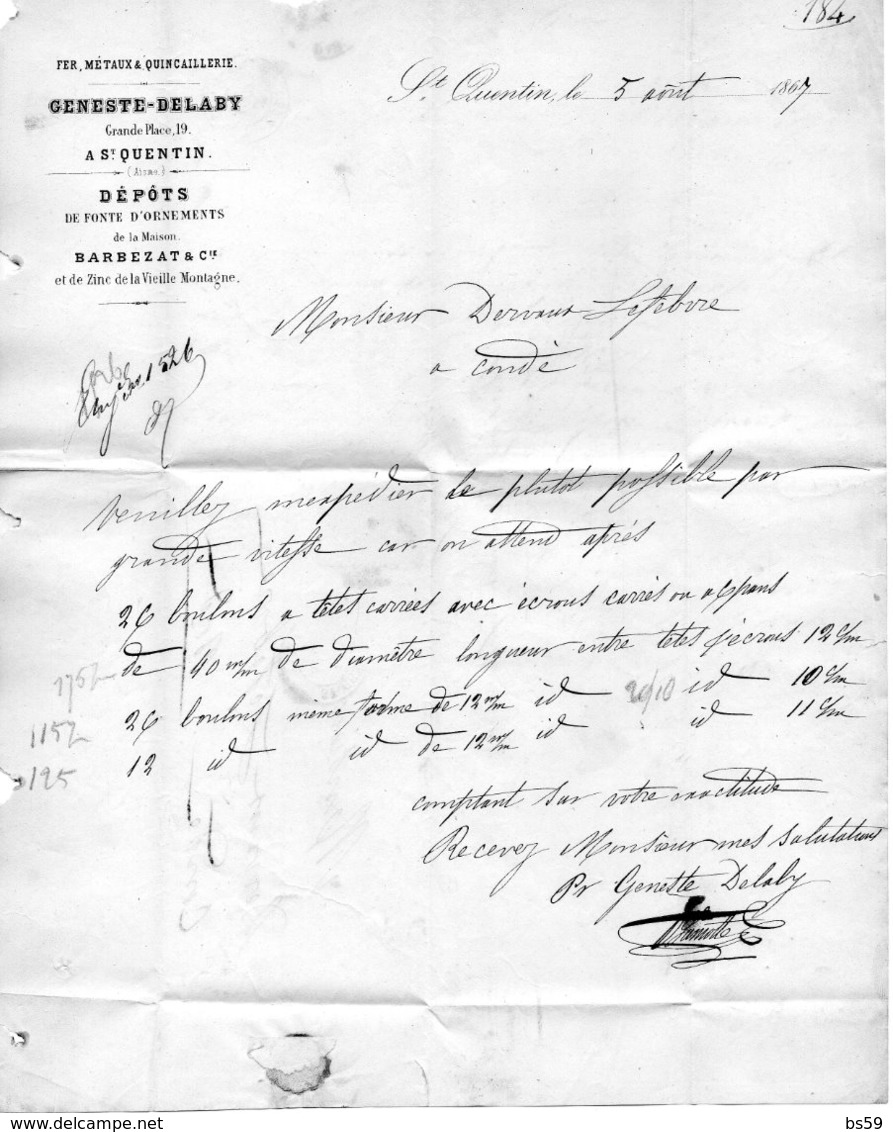 184
FER, MÉTAUX & QUINCAILLERIE.
GENESTE-DELABY
Grande Place, 19.
A ST QUENTIN.
(Aisne)
DÉPÔTS
DE FONTE D'ORNEMENTS
de la Maison.
BARBEZAT & CIE
et de Zinc de la Vieille Montagne.
St Quentin, le 5 août 1867
Monsieur Dervaux Lefebvre
a condé
1526
Veuillez mexpédier le plutot possible par
grande vitesse car on attend aprés
26 boulons a têtes carrées avec écrous carrés ou a 6 pans
de 40 m/m de diamêtre longueur entre têtes & écrous 12 c/m
175
26 boulons même forme de 12 m/m id id 10 c/m
20/10
115
12 id id de 12 m/m id id 11 c/m
125
comptant sur votre exactitude
Recevez Monsieur mes salutations
Pr Geneste Delaby
bs59